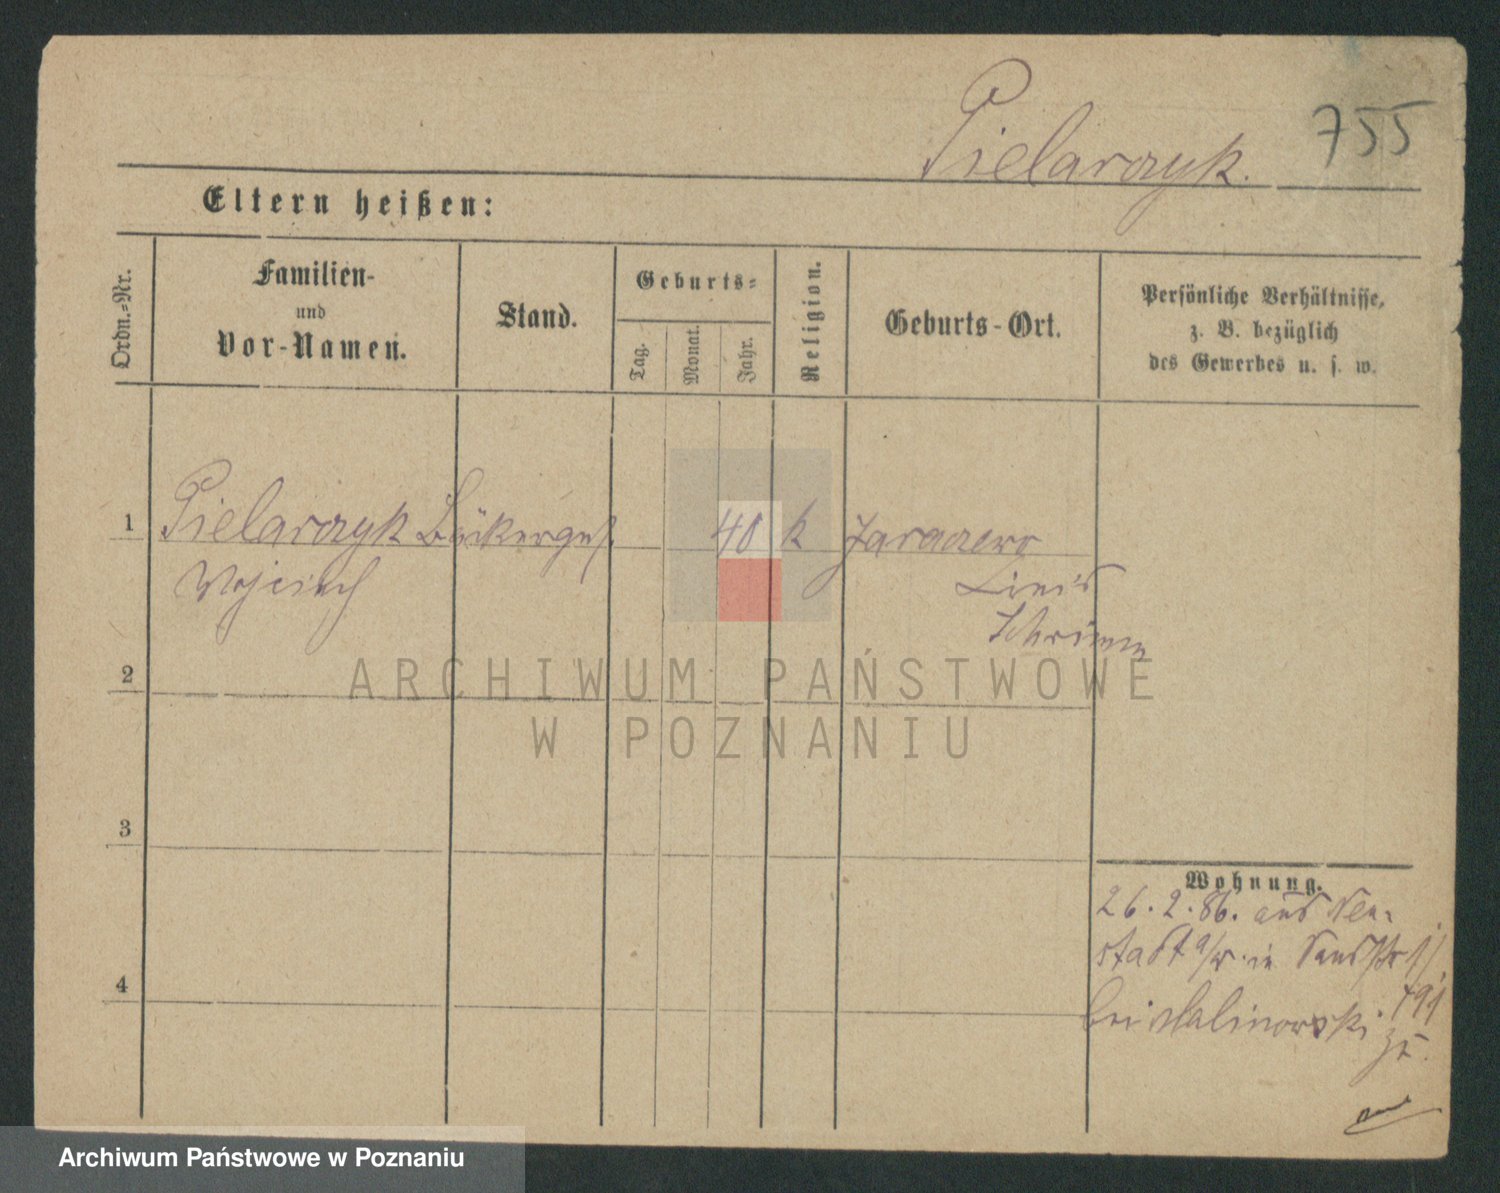 Pielarczyk.
755
Eltern heißen:
Ordn.-Nr.
Familien-
und
Vor-Namen.
Stand.
Geburts-
Tag.
Monat.
Jahr.
Religion.
Geburts-Ort.
Persönliche Verhältnisse,
z. B. bezüglich
des Gewerbes u. s. w.
1 Pielarczyk Bäckerges. 40 k Jaraczewo
Wojciech
Schrimm
2
3
4
Wohnung.
26.2.86. aus Neu-
stadt a/W. in
bei Malinowski
ARCHIWUM PAŃSTWOWE
W POZNANIU
Archiwum Państwowe w Poznaniu